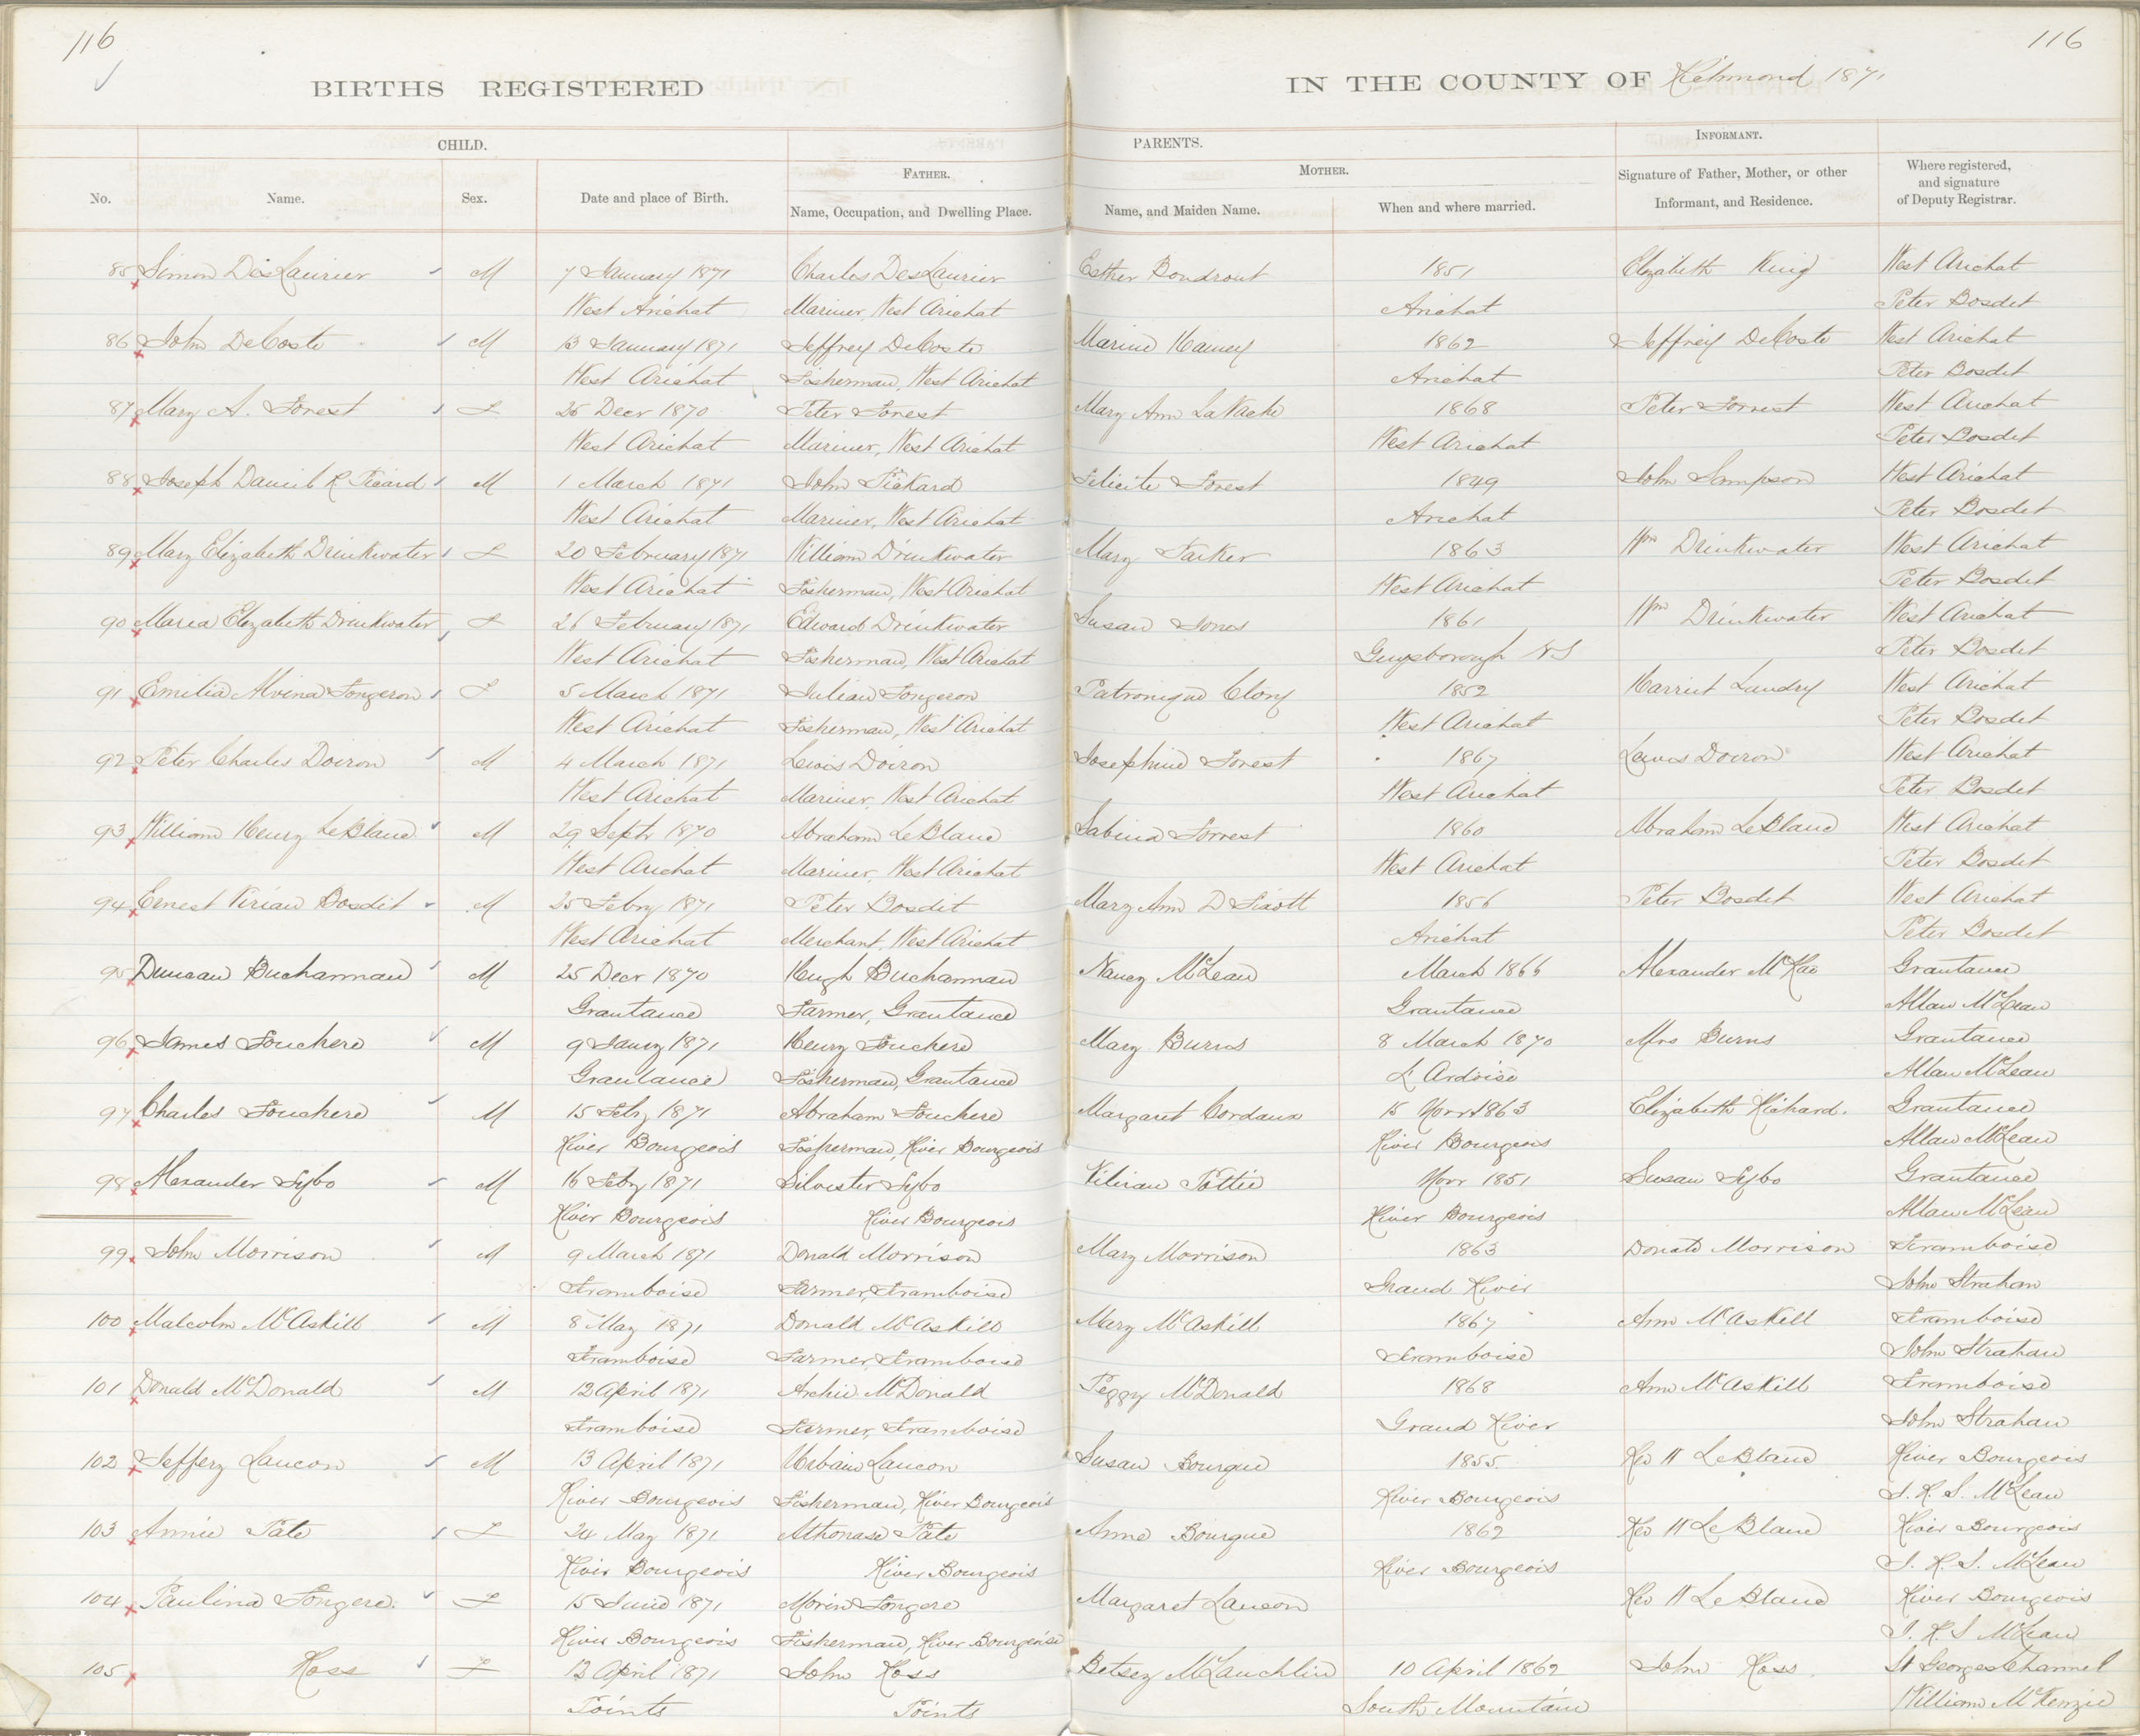 116
116
BIRTHS REGISTERED IN THE COUNTY OF Richmond 1871
CHILD. PARENTS. INFORMANT.
FATHER. MOTHER. Signature of Father, Mother, or other Where registered,
and signature
No. Name. Sex. Date and place of Birth. Name, Occupation, and Dwelling Place. Name, and Maiden Name. When and where married. Informant, and Residence. of Deputy Registrar.
85 Simon DesLaurier M 7 January 1871 Charles DesLaurier Esther Boudrout 1851 Elizabeth King West Arichat
West Arichat Mariner, West Arichat Arichat Peter Bosdet
86 John DeCoste M 13 January 1871 Jeffrey DeCoste 1862 Jeffrey DeCoste West Arichat
West Arichat Fisherman, West Arichat Arichat Peter Bosdet
87 Mary A. Forest F 26 Decr 1870 Peter Forest Mary Ann LaVache 1868 Peter Forrest West Arichat
West Arichat Mariner, West Arichat West Arichat Peter Bosdet
88 Joseph Daniel R Picard M 1 March 1871 John Pickard Felicite Forest 1849 John Sampson West Arichat
West Arichat Mariner, West Arichat Arichat Peter Bosdet
89 Mary Elizabeth Drinkwater F 20 February 1871 William Drinkwater Mary Parker 1863 Wm Drinkwater West Arichat
West Arichat Fisherman, West Arichat West Arichat Peter Bosdet
90 Maria Elizabeth Drinkwater F 26 February 1871 Edward Drinkwater Susan Jones 1861 Wm Drinkwater West Arichat
West Arichat Fisherman, West Arichat Guysborough NS Peter Bosdet
91 Emilia Alvina Fongeron F 5 March 1871 Julian Fongeron Patronique Clory 1852 Harriet Landry West Arichat
West Arichat Fisherman, West Arichat West Arichat Peter Bosdet
92 Peter Charles Doiron M 4 March 1871 Lewis Doiron Josephine Forest 1867 Lewis Doiron West Arichat
West Arichat Mariner, West Arichat West Arichat Peter Bosdet
93 William Henry LeBlanc M 29 Septr 1870 Abraham LeBlanc Sabina Forrest 1860 Abraham LeBlanc West Arichat
West Arichat Mariner, West Arichat West Arichat Peter Bosdet
94 Ernest Virian Bosdet M 25 Febry 1871 Peter Bosdet Mary Ann D 1856 Peter Bosdet West Arichat
West Arichat Merchant, West Arichat Arichat Peter Bosdet
95 Duncan Buchannan M 25 Decr 1870 Hugh Buchannan Nancy McLean March 1866 Alexander McRae Grantance
Grantance Farmer, Grantance Grantance Allan McLean
96 James Fouchere M 9 Jany 1871 Henry Fouchere Mary Burns 8 March 1870 Mrs Burns Grantance
Grantance Fisherman, Grantance L'Ardoise Allan McLean
97 Charles Fouchere M 15 Feby 1871 Abraham Fouchere Margaret Cordaux 15 Novr 1863 Elizabeth Richard. Grantance
River Bourgeois Fisherman, River Bourgeois River Bourgeois Allan McLean
98 Alexander Sybo M 16 Feby 1871 Silvester Sybo Pottie Novr 1851 Susan Sybo Grantance
River Bourgeois River Bourgeois River Bourgeois Allan McLean
99 John Morrison M 9 March 1871 Donald Morrison Mary Morrison 1863 Donald Morrison Framboise
Framboise Farmer, Framboise Grand River John Strahan
100 Malcolm McAskill M 8 May 1871 Donald McAskill Mary McAskill 1867 Ann McAskill Framboise
Framboise Farmer, Framboise Framboise John Strahan
101 Donald McDonald M 12 April 1871 Archie McDonald Peggy McDonald 1868 Ann McAskill Framboise
Framboise Farmer, Framboise Grand River John Strahan
102 Jeffery Laucon M 13 April 1871 Urbain Laucon Susan Bourque 1855 Rev W LeBlanc River Bourgeois
River Bourgeois Fisherman, River Bourgeois River Bourgeois J. R. S. McLean
103 Annie Pate F 24 May 1871 Athonase Pate Anne Bourque 1862 Rev W LeBlanc River Bourgeois
River Bourgeois River Bourgeois River Bourgeois J. R. S. McLean
104 Paulina Fongere. F 15 June 1871 Morin Fongere Margaret Laucon Rev W LeBlanc River Bourgeois
River Bourgeois Fisherman, River Bourgeoise J. R. S McLean
105 Ross F 12 April 1871 John Ross Betsey McLauchlin 10 April 1862 John Ross. St Georges Channel
Points Points South Mountain William McKenzie